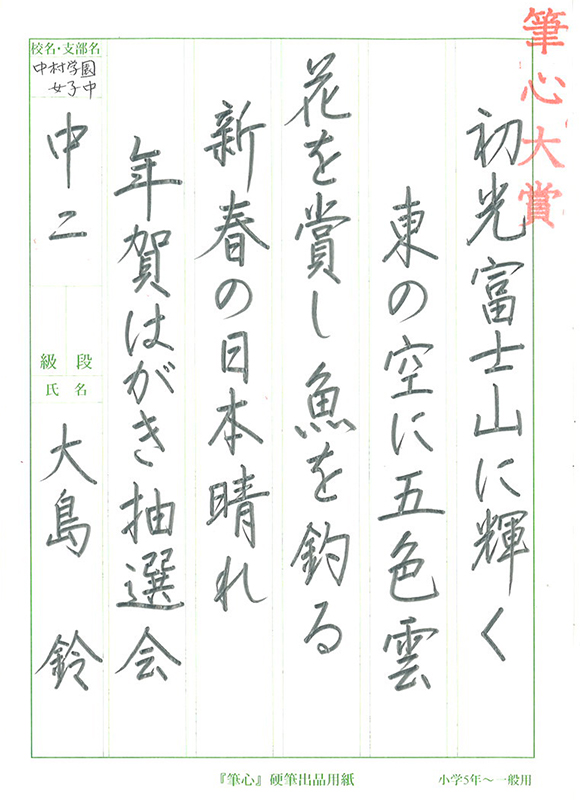 筆心大賞
初光富士山に輝く
東の空に五色雲
花を賞し魚を釣る
新春の日本晴れ
年賀はがき抽選会
校名・支部名
中村学園
女子中
中二
級 段
氏 名
大島 鈴
『筆心』硬筆出品用紙
小学5年〜一般用